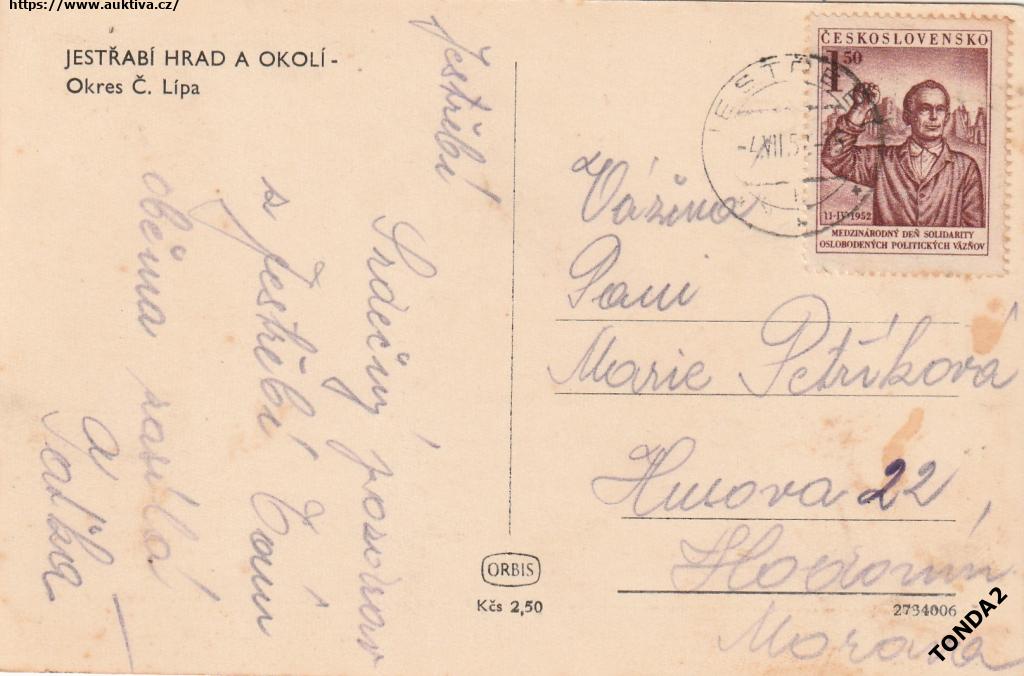 https://www.auktiva.cz/
JESTŘABÍ HRAD A OKOLÍ -
Okres Č. Lípa
Jestřebí
Srdečný pozdrav
s Jestřebí Vám
oběma zasílá
a
ČESKOSLOVENSKO
1 50
11·IV·1952
MEDZINÁRODNÝ DEŇ SOLIDARITY
OSLOBODENÝCH POLITICKÝCH VÄZŇOV
Vážená
Paní
Marie Petříková
Husova 22,
Hodonín
Morava
ORBIS
Kčs 2,50
2734006
TONDA2